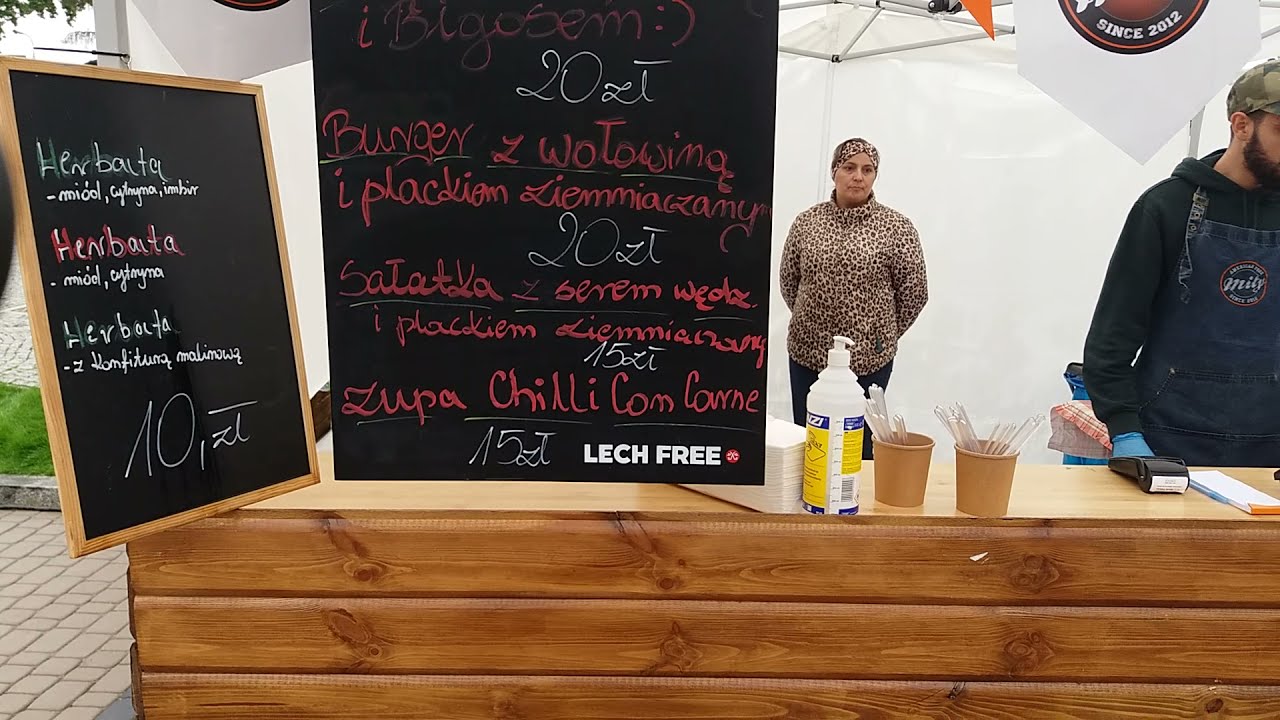 Herbata
- miód, cytryna, imbir
Herbata
- miód, cytryna
Herbata
- z konfiturą malinową
10,- zł
i Bigosem :)
20zł
Burger z wołowiną
i plackiem ziemniaczanym
20zł
Sałatka z serem wędz.
i plackiem ziemniaczanym
15zł
zupa Chilli Con Carne
15zł
LECH FREE
SINCE 2012
AMERICAN FOOD
mily
SINCE 2012